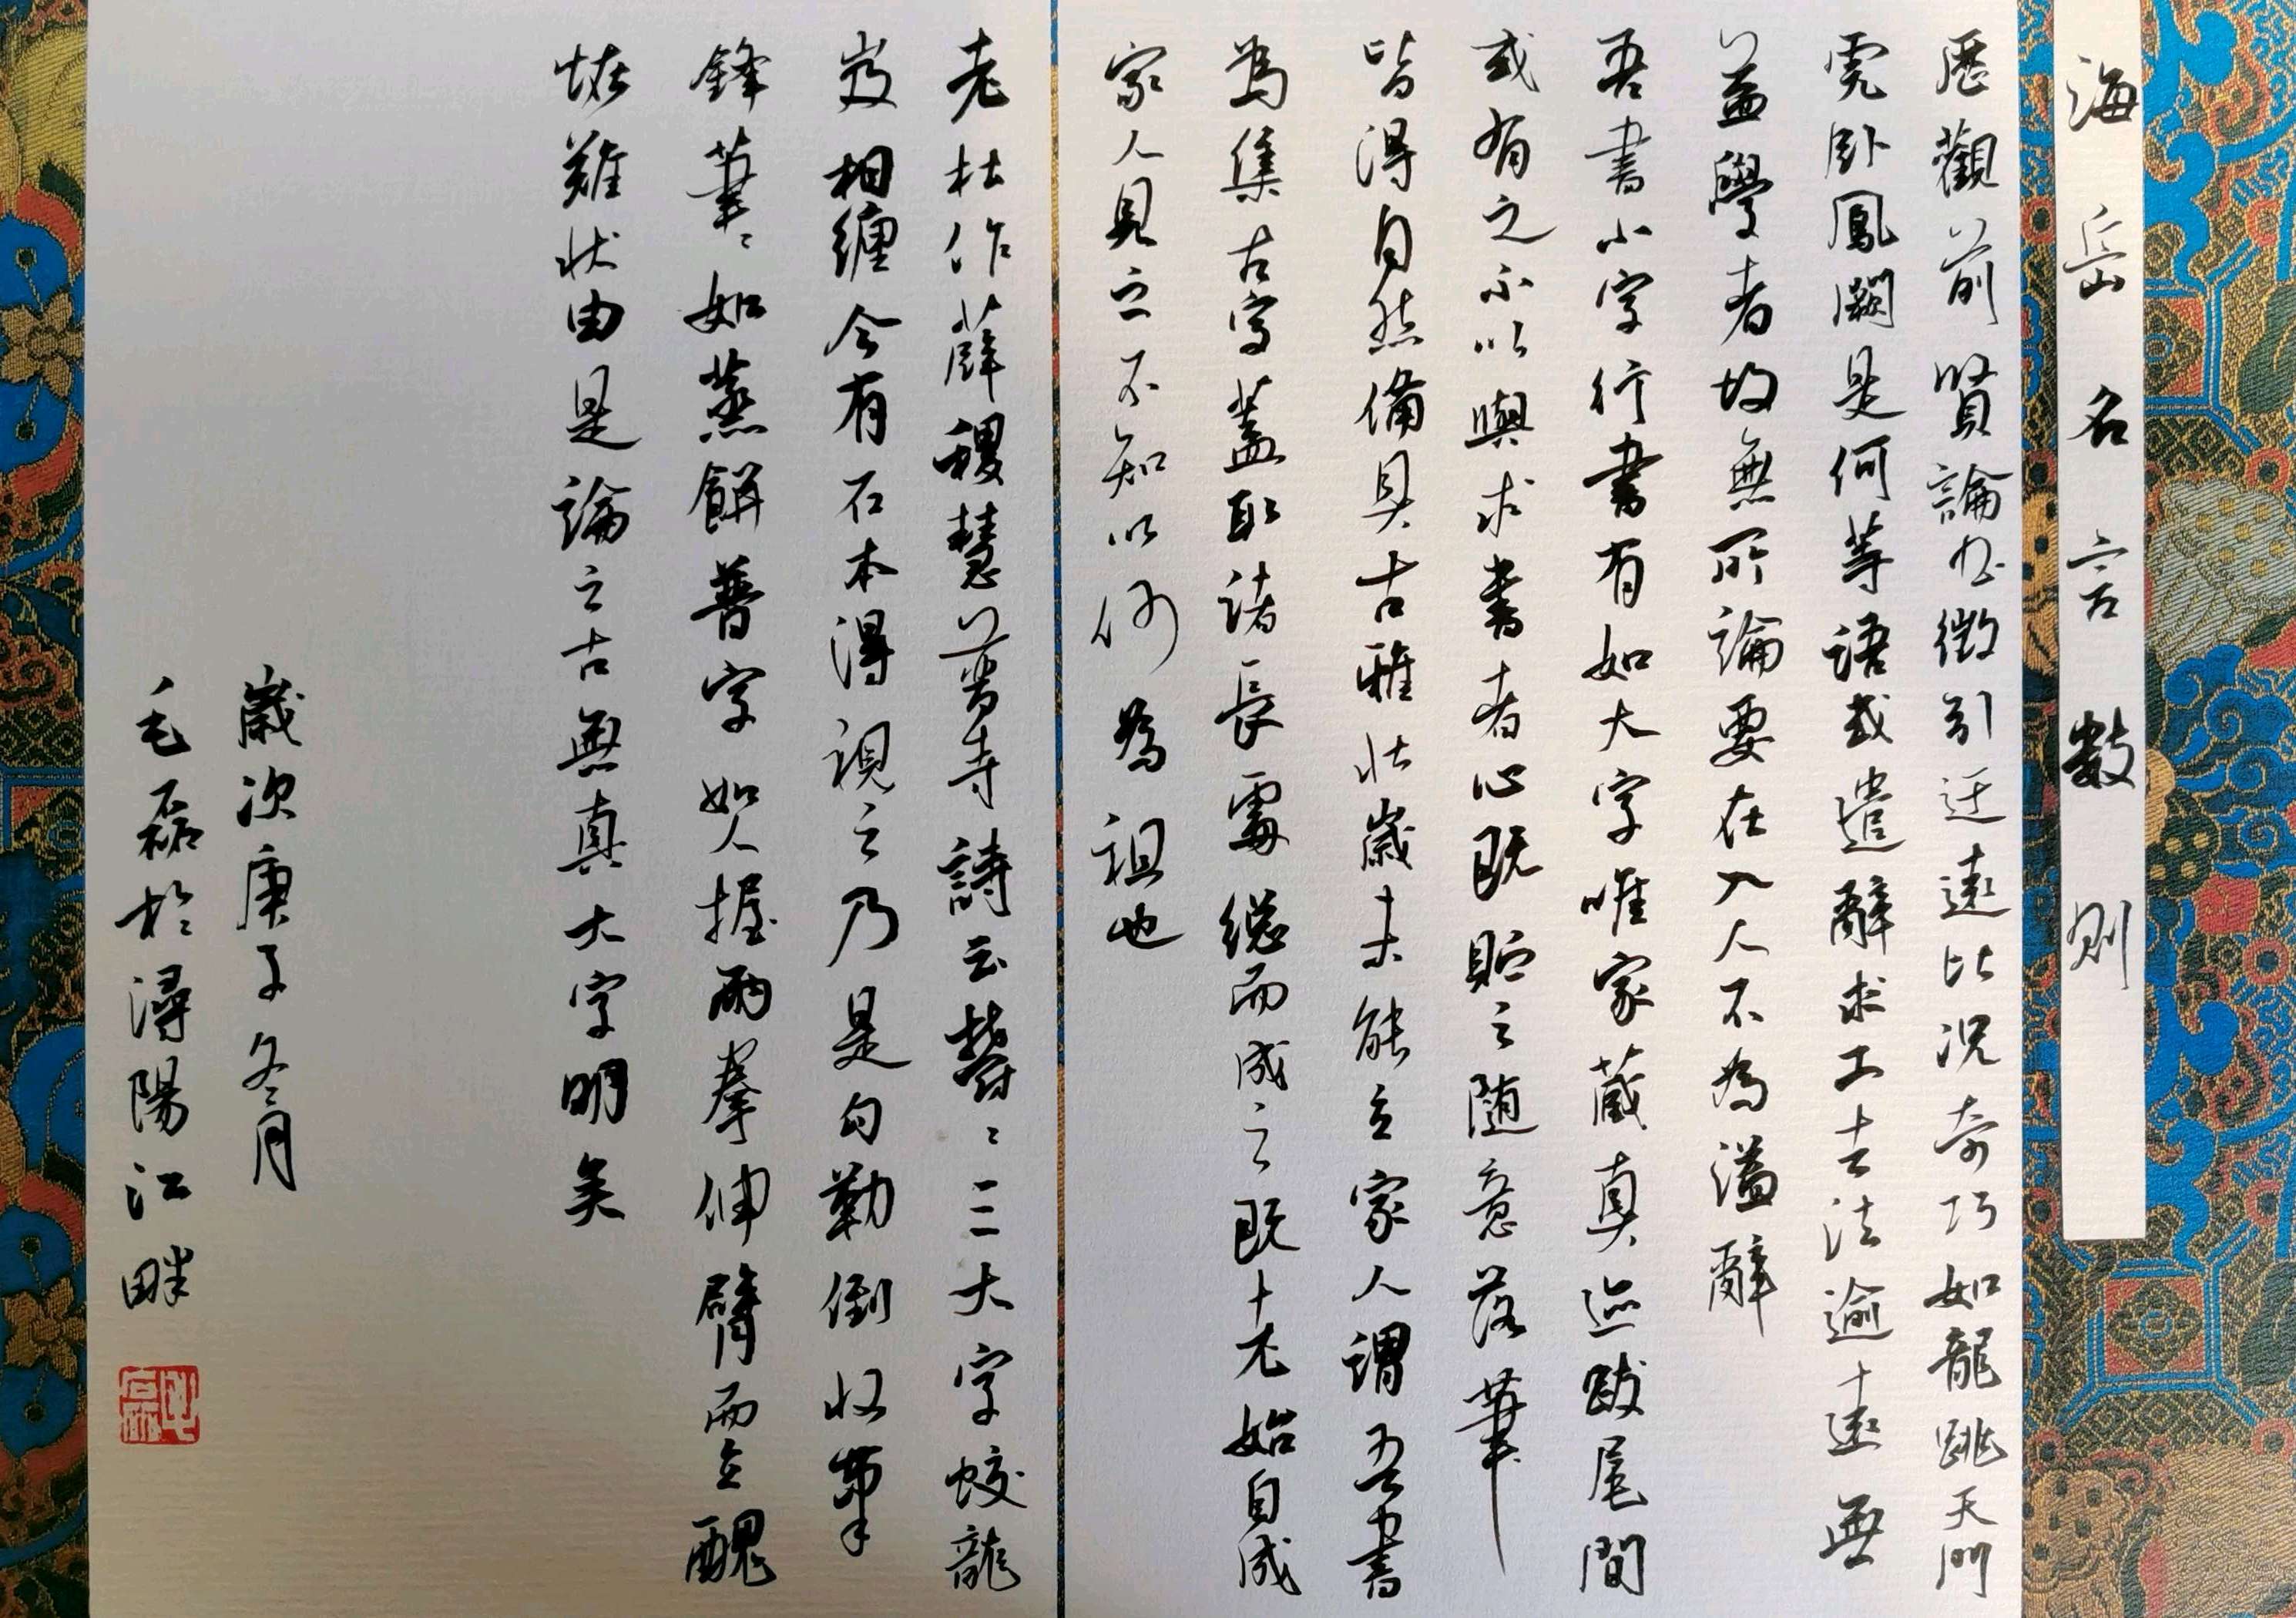 海岳名言數則
歷觀前賢論書徵引迂遠比況奇巧如龍跳天門
虎臥鳳闕是何等語或遣辭求工去法逾遠無
益學者故無所論要在入人不為溢辭
吾書小字行書有如大字唯家藏真迹跋尾間
或有之不以與求書者心既貯之隨意落筆
皆得自然備具古雅壯歲未能立家人謂吾書
為集古字蓋取諸長處總而成之既老始自成
家人見之不知以何為祖也
老杜作薛稷慧普寺詩云鬱〻三大字蛟龍
岌相纏今有石本得視之乃是勾勒倒收筆
鋒筆〻如蒸餅普字如人握兩拳伸臂而立醜
怪難狀由是論之古無真大字明矣
歲次庚子冬月
毛磊於潯陽江畔